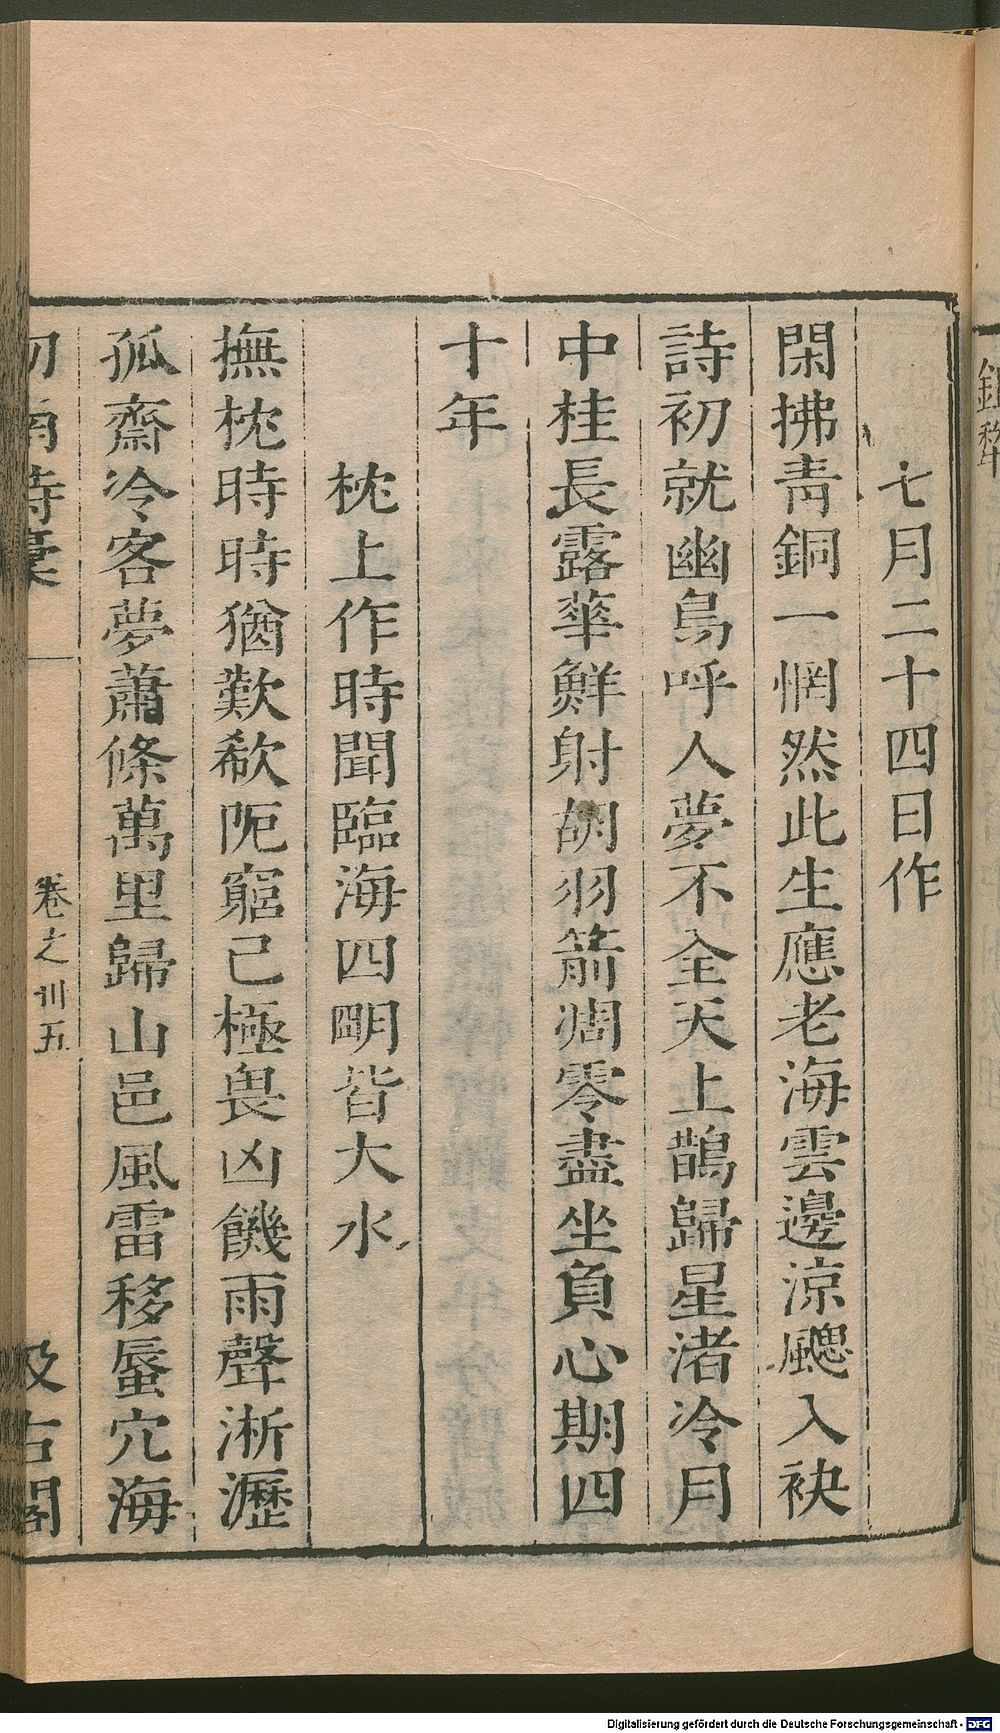 七月二十四日作
閑拂青銅一惘然此生應老海雲邊涼颸入袂
詩初就幽鳥呼人夢不全天上鵲歸星渚冷月
中桂長露華鮮射胡羽箭凋零盡坐負心期四
十年
枕上作時聞臨海四明皆大水
撫枕時時猶歎欷阨窮已極畏凶饑雨聲淅瀝
孤齋冷客夢蕭條萬里歸山邑風雷移蜃穴海
卷之卅五
汲古閣
Digitalisierung gefördert durch die Deutsche Forschungsgemeinschaft - DFG